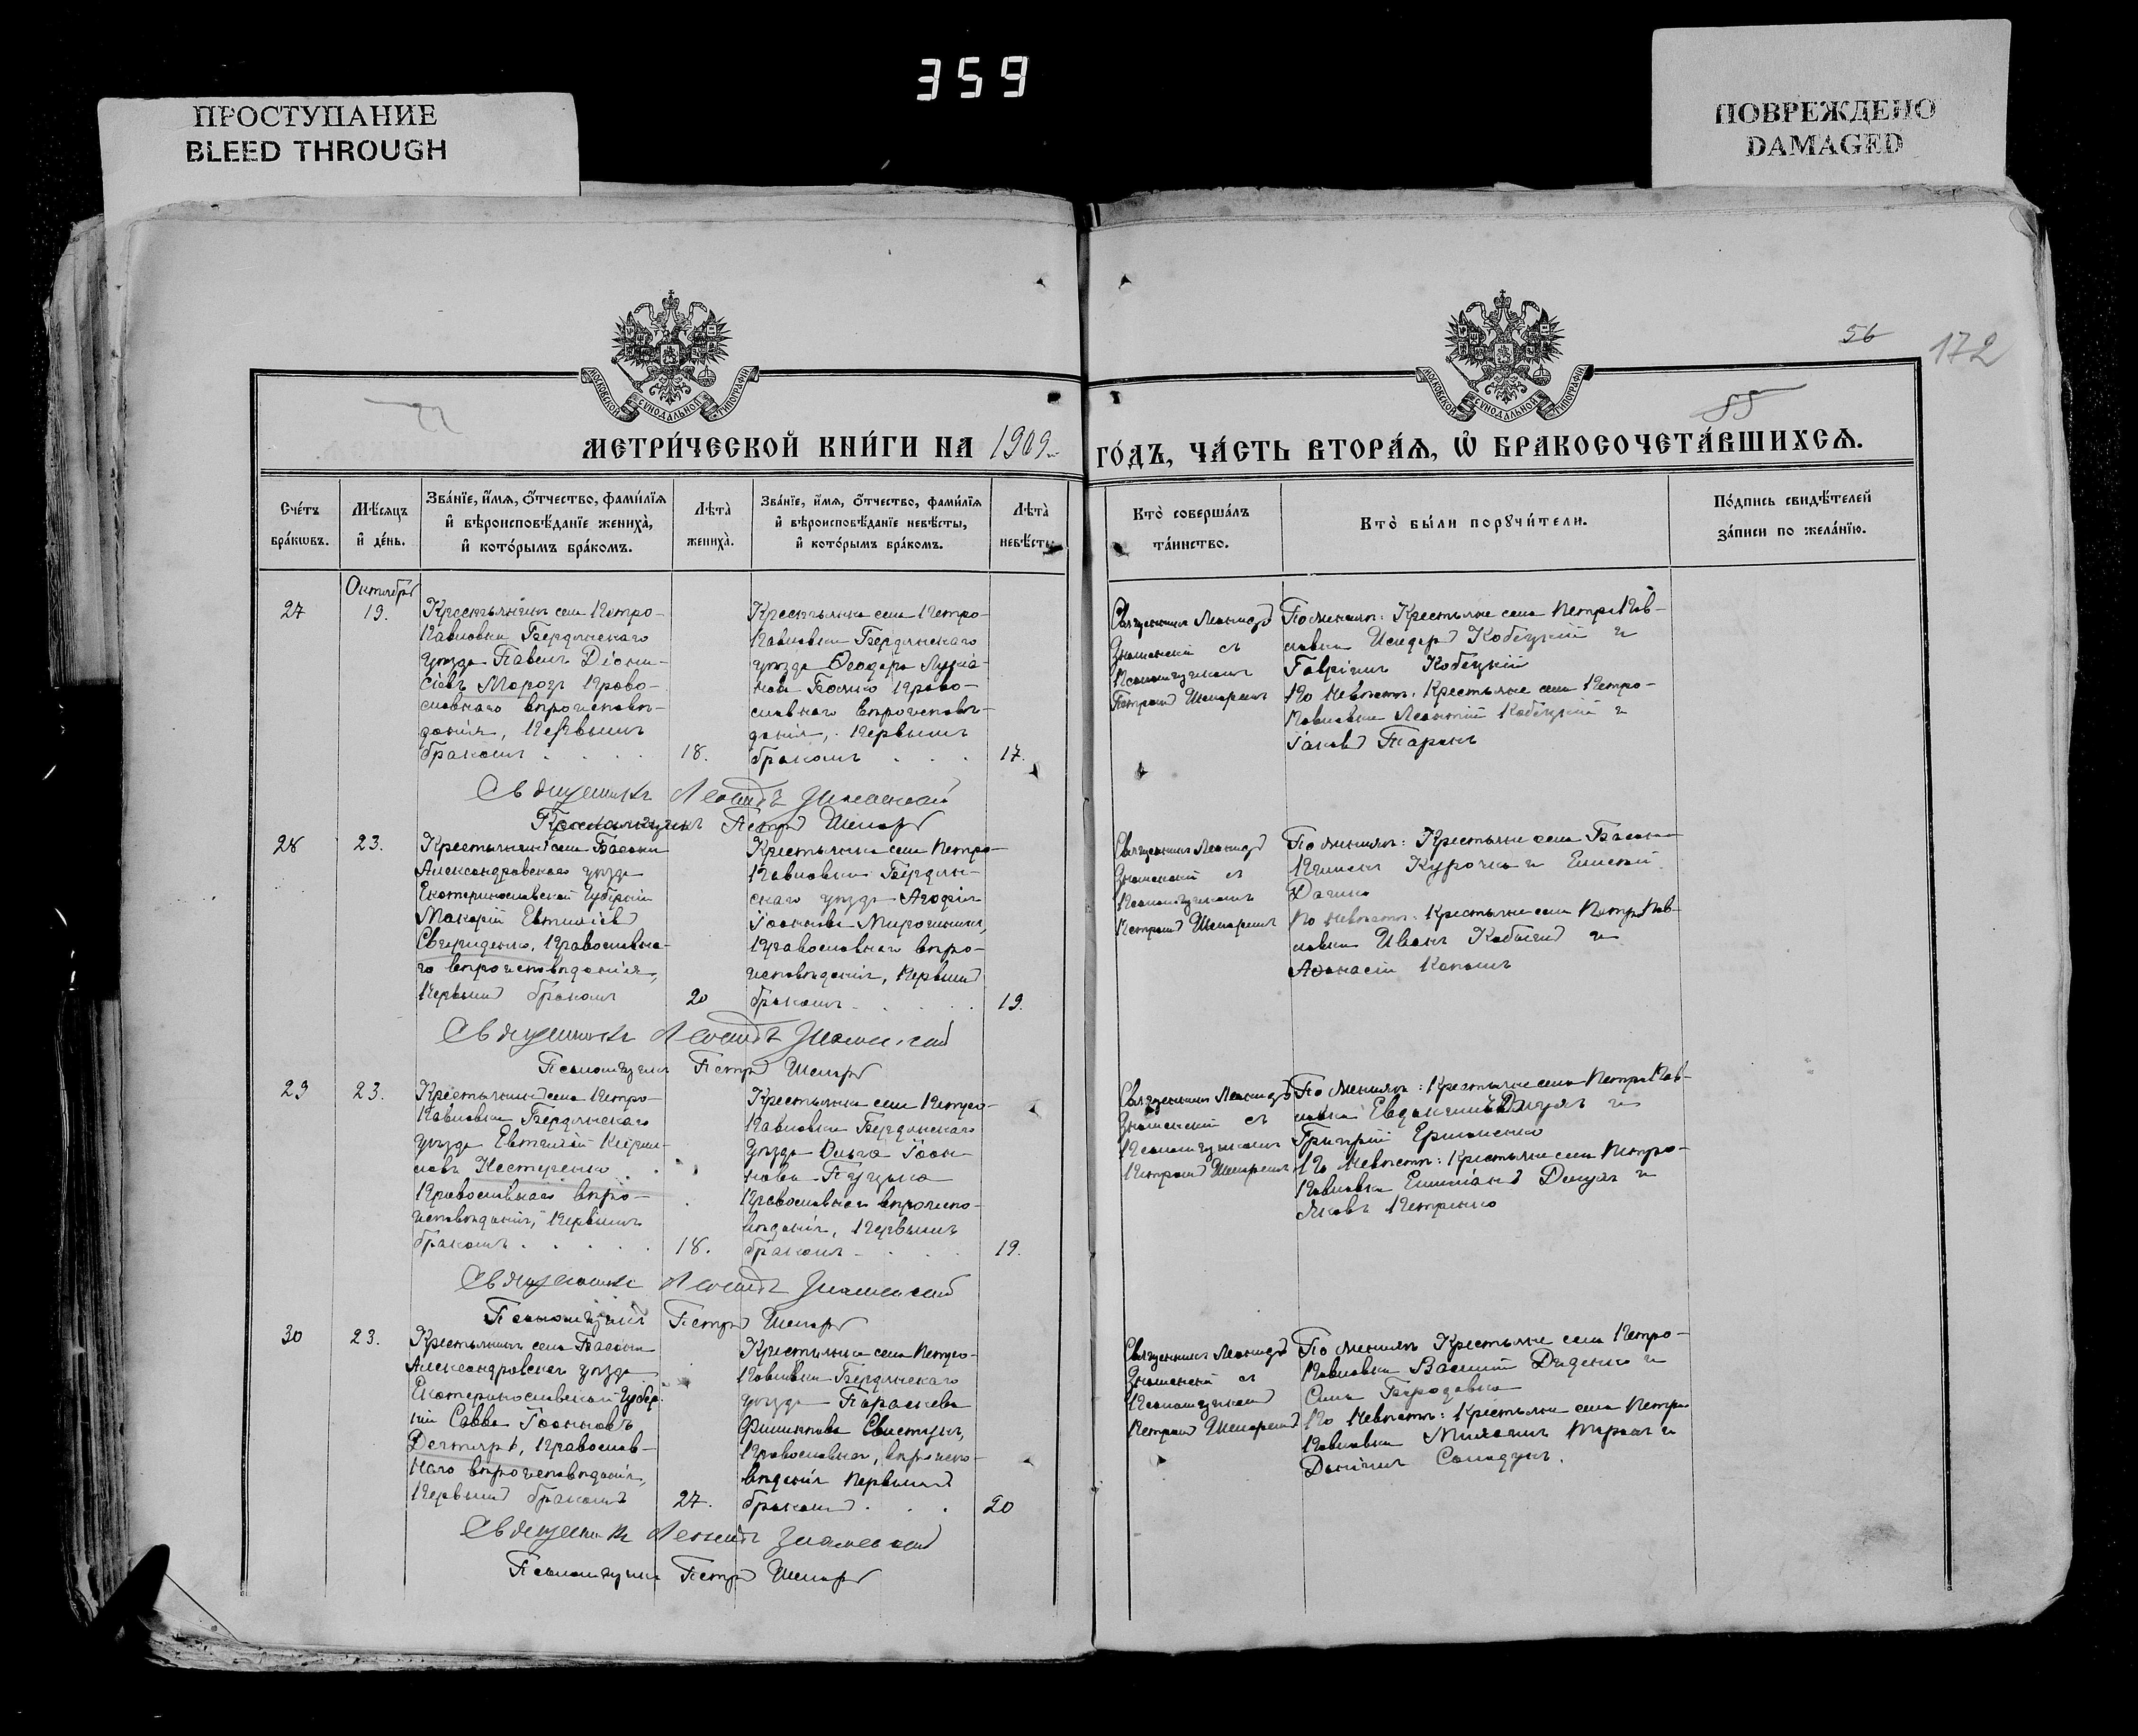 359
ПРОСТУПАНИЕ
BLEED THROUGH
ПОВРЕЖДЕНО
DAMAGED
56
172
55
МОСКОВСКОЙ СѴНОДАЛЬНОЙ ТИПОГРАФІИ
МОСКОВСКОЙ СѴНОДАЛЬНОЙ ТИПОГРАФІИ
МЕТРИ́ЧЕСКОЙ КНИ́ГИ НА 1909
ГО́ДЪ, ЧА́СТЬ ВТОРА́Ѧ, Ѽ БРАКОСОЧЕТА́ВШИХСѦ.
Сче́тъ
бра́кѡвъ.
Мѣ́сяцъ
и҆ де́нь.
Зва́нїе, и҆́мѧ, ѻ҆́тчество, фами́лїѧ
и҆ вѣроисповѣ́данїе жениха̀,
и҆ кото́рымъ бра́комъ.
Лѣта̀
жениха̀.
Зва́нїе, и҆́мѧ, ѻ҆́тчество, фами́лїѧ
и҆ вѣроисповѣ́данїе невѣ́сты,
и҆ кото́рымъ бра́комъ.
Лѣта̀
невѣ́сты
Кто̀ соверша́лъ
та́инство.
Кто̀ бы́ли порꙋчи́тели.
По́дпись свидѣ́телей
за́писи по жела́нїю.
27
Октября
19.
Крестьянинъ села Петро-
Павловки Бердянскаго
уѣзда Павелъ Діони-
сіевъ Морозъ право-
славнаго вѣроисповѣ-
данія, первымъ
бракомъ
18.
Крестьянка села Петро-
Павловки Бердянскаго
уѣзда Ѳеодора Лукіа-
нова право-
славнаго вѣроисповѣ-
данія, первымъ
бракомъ
17.
Священникъ Леонидъ
Знаменскій съ
Псаломщикомъ
Петромъ
По женихѣ: Крестьяне села Петро Пав-
ловки Исидоръ Кобецкій и
Гавріилъ Кобецкій
По невѣстѣ: Крестьяне села Петро-
Павловки Леонтій Кобецкій и
Іаковъ Таранъ
Священникъ Леонидъ Знаменскій
Псаломщикъ Петръ
28
23.
Крестьянинъ села Басани
Александровскаго уѣзда
Екатеринославской Губерніи
Макарій Евтихіевъ
Свириденко, православна-
го вѣроисповѣданія,
первымъ бракомъ
20
Крестьянка села Петро-
Павловки Бердян-
скаго уѣзда Агафія
Іоаннова
православнаго вѣро-
исповѣданія, первымъ
бракомъ
19.
Священникъ Леонидъ
Знаменскій съ
Псаломщикомъ
Петромъ
По женихѣ: Крестьяне села Басани
Курочка и Елисей
По невѣстѣ: Крестьяне села Петро Пав-
ловки Иванъ и
Аѳанасій
Священникъ Леонидъ Знаменскій
Псаломщикъ Петръ
29
23.
Крестьянинъ села Петро-
Павловки Бердянскаго
уѣзда Евтихій Кирил-
ловъ Нестеренко
Православнаго вѣро-
исповѣданія, первымъ
бракомъ
18.
Крестьянка села Петро-
Павловки Бердянскаго
уѣзда Ольга Іоан-
нова
Православнаго вѣроиспо-
вѣданія, первымъ
бракомъ
19.
Священникъ Леонидъ
Знаменскій съ
Псаломщикомъ
Петромъ
По женихѣ: Крестьяне села Петро Пав-
ловки Евдокимъ и
Григорій Ермоленко
По невѣстѣ: Крестьяне села Петро-
Павловки и
Яковъ Петренко
Священникъ Леонидъ Знаменскій
Псаломщикъ Петръ
30
23.
Крестьянинъ села Басани
Александровскаго уѣзда
Екатеринославской Губер-
ніи Савва Іоанновъ
Дегтярь, православ-
наго вѣроисповѣданія,
первымъ бракомъ
27.
Крестьянка села Петро-
Павловки Бердянскаго
уѣзда Параскева
Филиппова Свистунъ,
Православнаго, вѣроиспо-
вѣданія первымъ
бракомъ
20
Священникъ Леонидъ
Знаменскій съ
Псаломщикомъ
Петромъ
По женихѣ Крестьяне села Петро-
Павловки Василій Диденко и
По невѣстѣ: Крестьяне села Петро
Павловки Михаилъ и
Даніилъ
Священникъ Леонидъ Знаменскій
Псаломщикъ Петръ